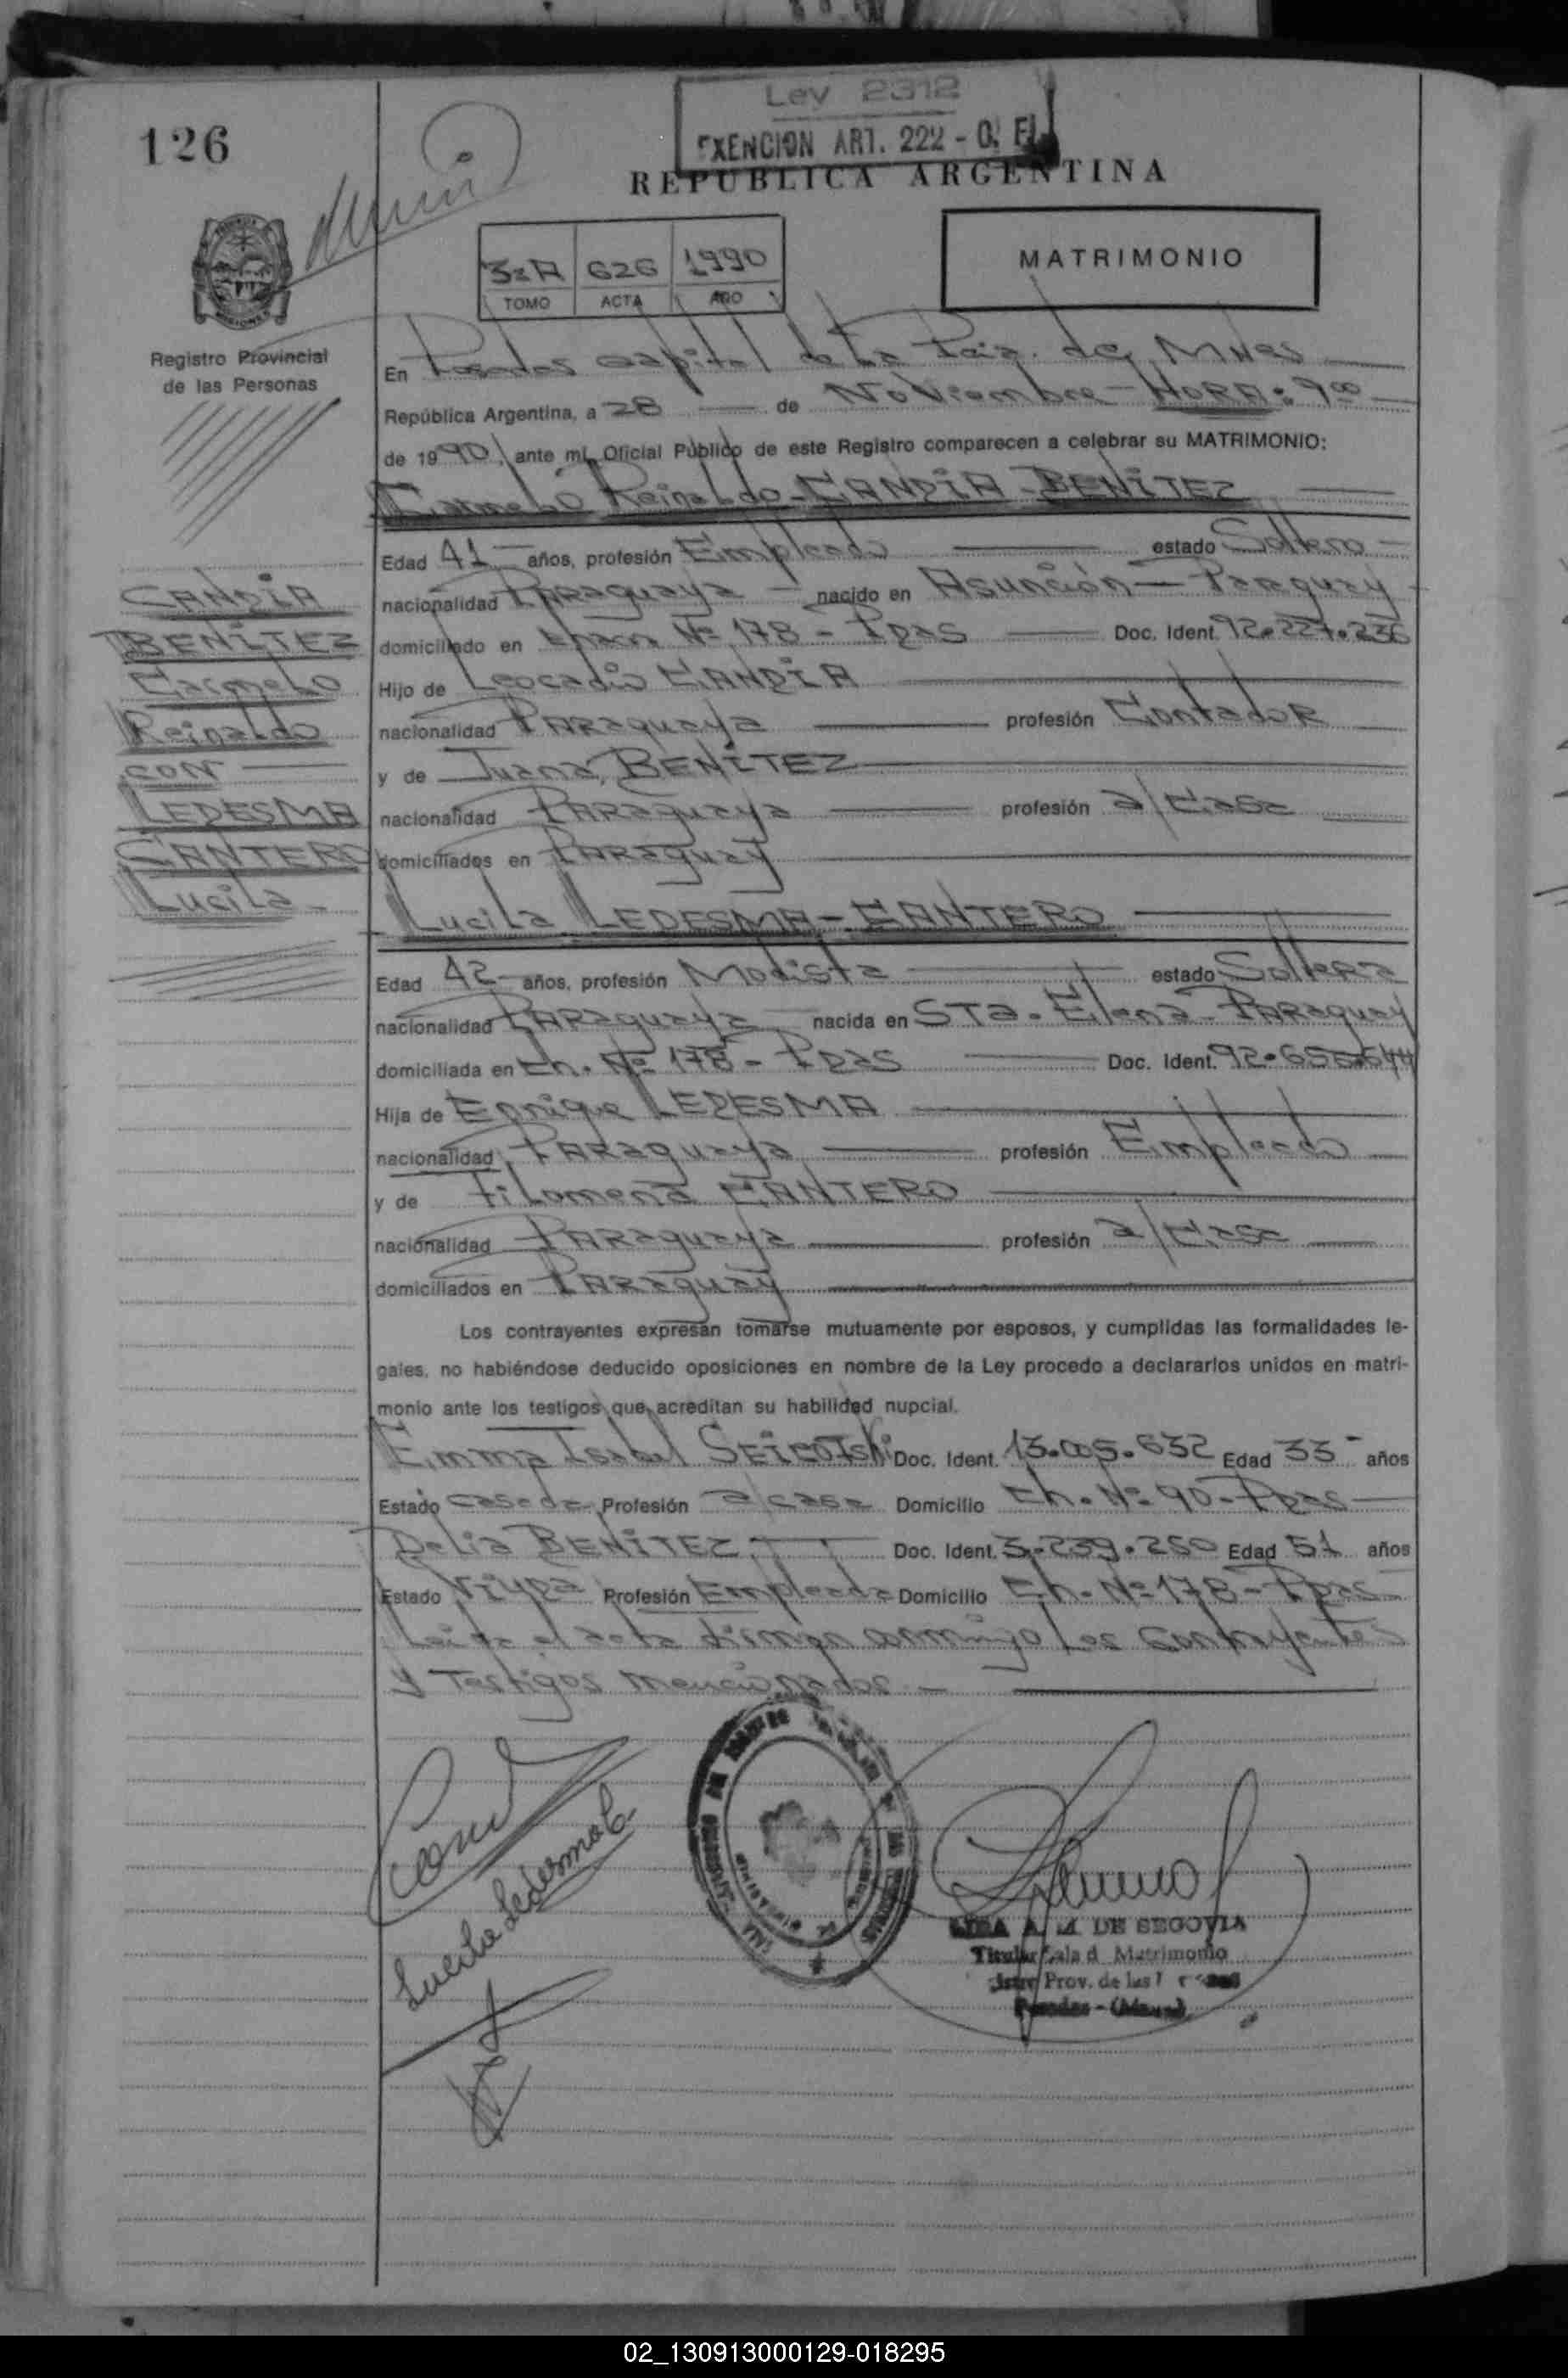 126
Ley 2312
EXENCION ART. 222 - O. F.
REPUBLICA ARGENTINA
3=A 626 1990
TOMO ACTA AÑO
MATRIMONIO
Registro Provincial
de las Personas
CANDIA
BENITEZ
Carmelo
Reinaldo
CON
LEDESMA
CANTERO
Lucila
En Posadas Capital de La Pcia. de Mnes
República Argentina, a 28 de Noviembre - HORA: 9oo
de 1990, ante mí, Oficial Público de este Registro comparecen a celebrar su MATRIMONIO:
Carmelo Reinaldo CANDIA - BENITEZ
Edad 41 años, profesión Empleado estado Soltero
nacionalidad PARaguaya nacido en Asunción - Paraguay
domiciliado en Chacra Nº 178 - Pdas Doc. Ident. 92.227.236
Hijo de Leocadio CANDIA
nacionalidad PARaguaya profesión Contador
y de Juana BENITEZ
nacionalidad PARaguaya profesión a/casa
domiciliados en PARaguay
Lucila LEDESMA - CANTERO
Edad 42 años, profesión Modista estado Soltera
nacionalidad PARaguaya nacida en STa. Elena - PARaguay
domiciliada en Ch. Nº 178 - Pdas Doc. Ident. 92.655.644
Hija de Enrique LEDESMA
nacionalidad PARaguaya profesión Empleado
y de Filomena CANTERO
nacionalidad PARaguaya profesión a/casa
domiciliados en PARaguay
Los contrayentes expresan tomarse mutuamente por esposos, y cumplidas las formalidades le-
gales, no habiéndose deducido oposiciones en nombre de la Ley procedo a declararlos unidos en matri-
monio ante los testigos que acreditan su habilidad nupcial.
Emma Isabel Doc. Ident. 13.005.632 Edad 33 años
Estado casada Profesión a/casa Domicilio Ch. Nº 90 - Pdas
Delia BENITEZ Doc. Ident. 3.239.250 Edad 51 años
Estado Viuda Profesión Empleada Domicilio Ch. Nº 178 - Pdas
Leida el acta firman conmigo Los Contrayentes
y Testigos mencionados
Lucila Ledesma C.
A. M. DE SEGOVIA
Titular Sala d Matrimonio
Prov. de las
Posadas - (Mnes)
02_130913000129-018295